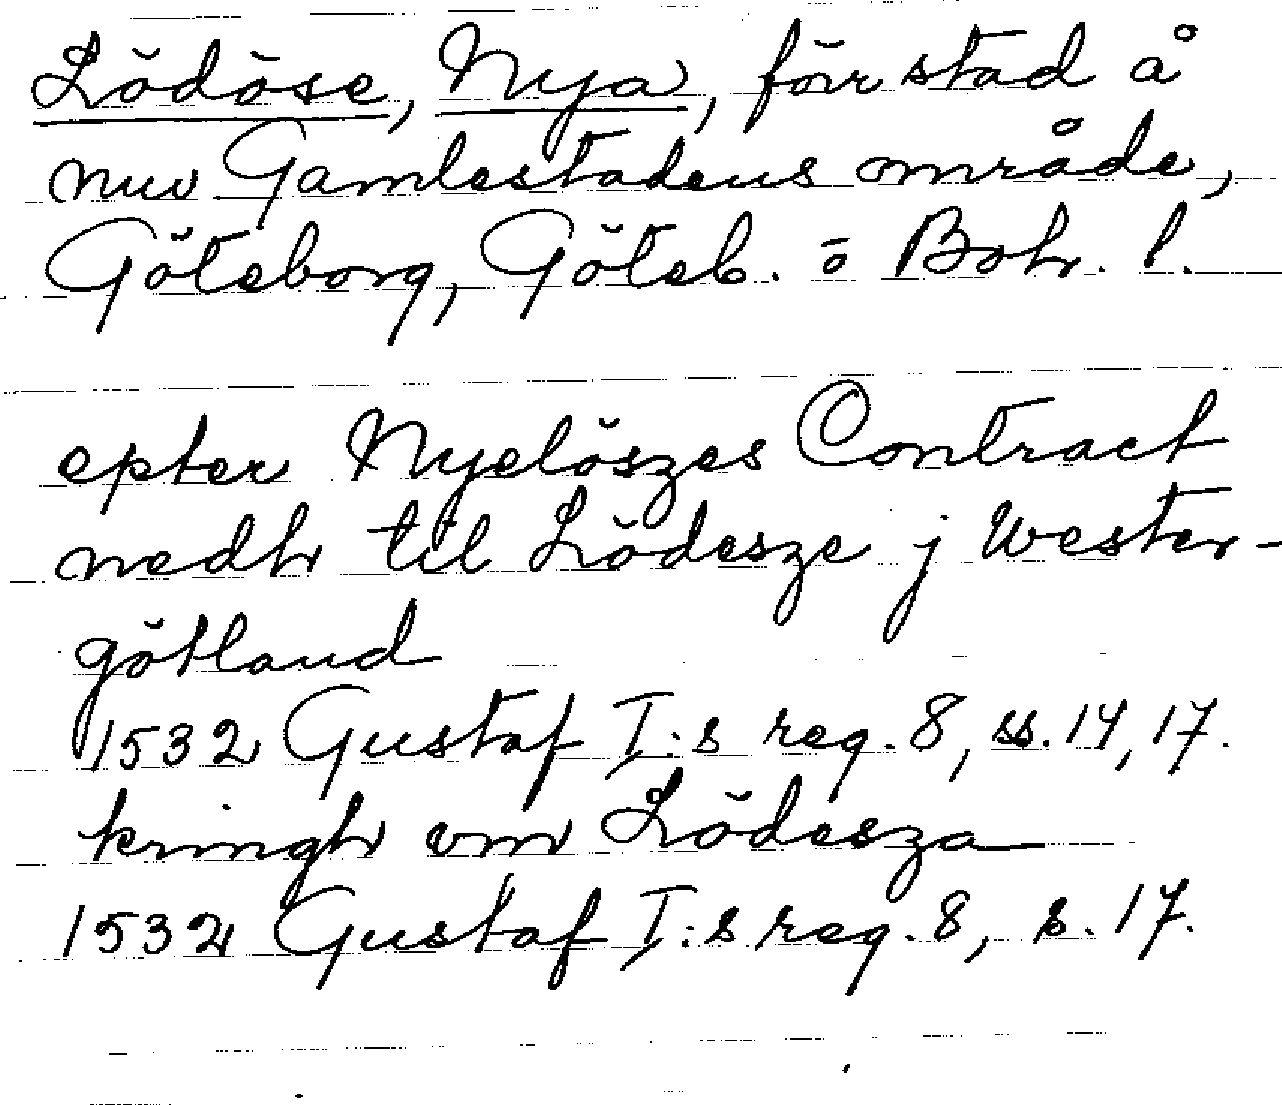 Lödöse, Nya, förr stad å
nuv Gamlestadens område,
Göteborg, Göteb. o Boh. l.
epter Nyelöszes Contract
nedh til Lödesze j Wester-
götland
1532 Gustaf I:s reg. 8, ss. 14, 17.
kringh vm Lödesza
1532 Gustaf I:s reg. 8, s. 17.